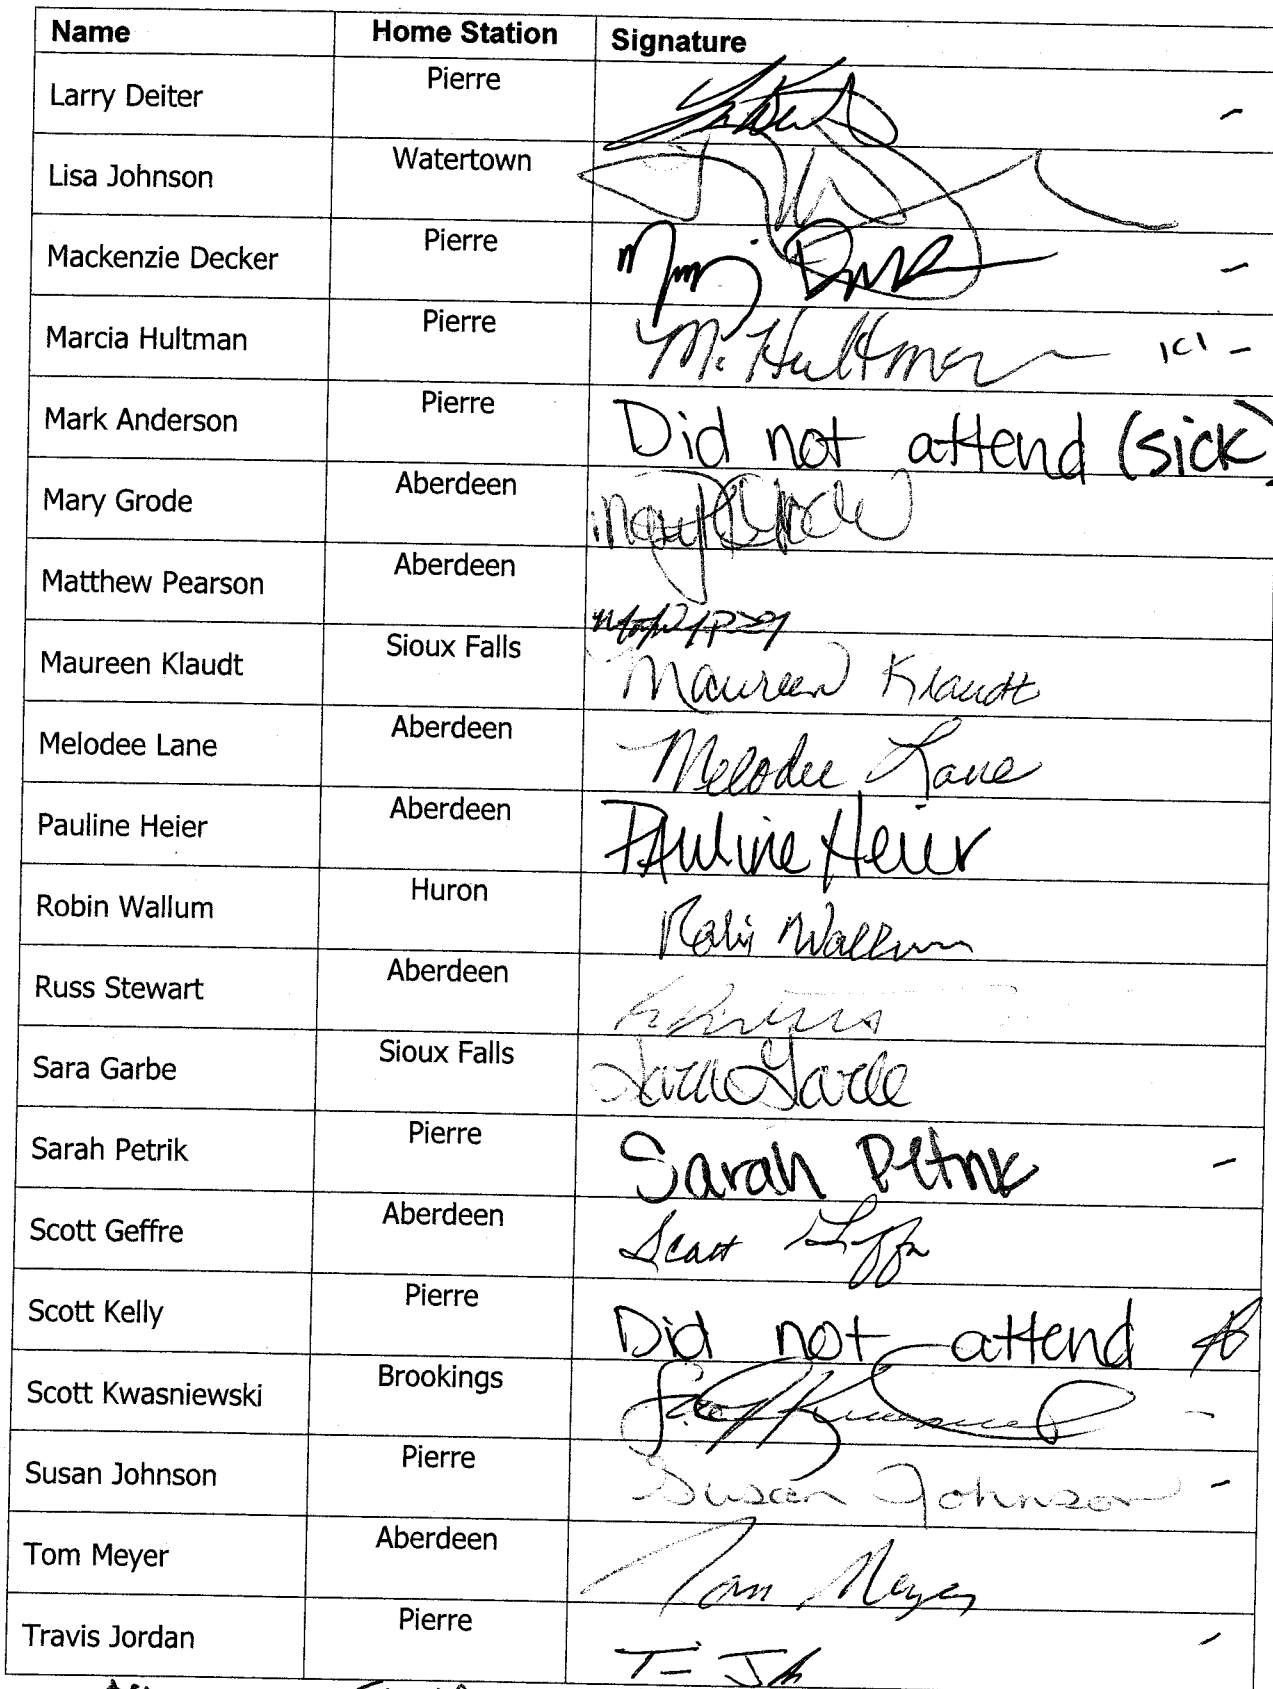 Name Home Station Signature
Larry Deiter Pierre
Lisa Johnson Watertown
Mackenzie Decker Pierre
Marcia Hultman Pierre M. Hultman
Mark Anderson Pierre Did not attend (sick)
Mary Grode Aberdeen Mary Grode
Matthew Pearson Aberdeen
Maureen Klaudt Sioux Falls Maureen Klaudt
Melodee Lane Aberdeen Melodee Lane
Pauline Heier Aberdeen Pauline Heier
Robin Wallum Huron Robin Wallum
Russ Stewart Aberdeen
Sara Garbe Sioux Falls Sara Garbe
Sarah Petrik Pierre Sarah Petrik
Scott Geffre Aberdeen Scott Geffre
Scott Kelly Pierre Did not attend
Scott Kwasniewski Brookings
Susan Johnson Pierre Susan Johnson
Tom Meyer Aberdeen Tom Meyer
Travis Jordan Pierre